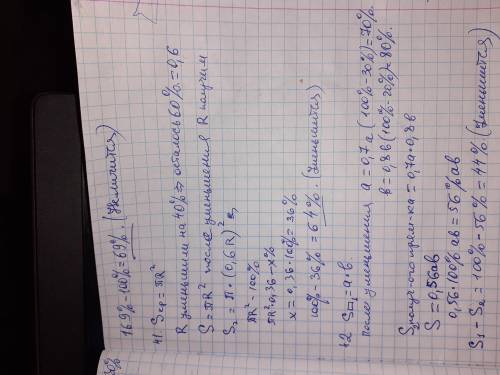 30%
169%-100%=69%. (Увеличится)
41 Sкр=πR²
R уменьшим на 40% ⇒ осталось 60%.=0,6
S=πR² после уменьшения R получим
S₂=π·(0,6R)²
πR²-100%
πR²0,36-x%
x=0,36·100%=36%
100%-36%=64%. (уменьшится)
42 S▭=a·b.
После уменьшения a=0,7a (100%-30%)=70%
b=0,8b (100%-20%)=80%.
S₂получ-ого прям-ка=0,7a·0,8b
S=0,56ab
0,56·100% ab=56% ab
S₁-S₂=100%-56%=44% (уменьшится)